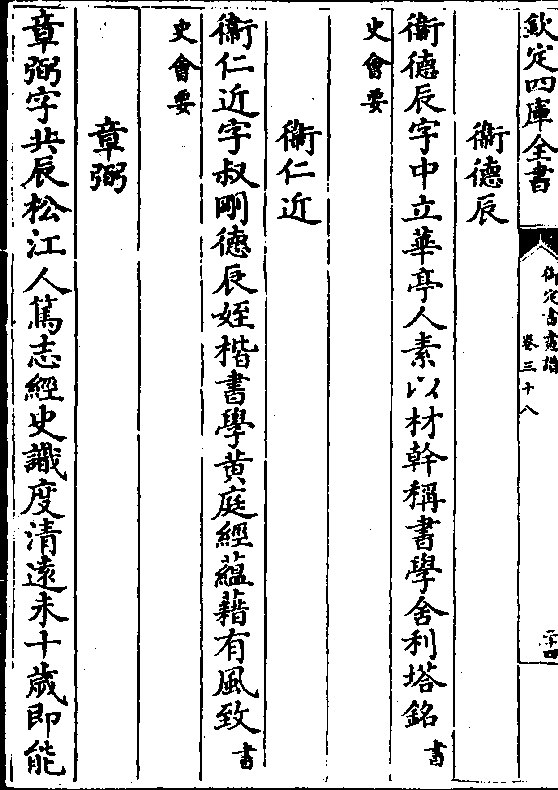 欽定四庫全書
御定書畫譜
卷三十八
二十四
衞德辰
衞德辰字中立華亭人素以材幹稱書學舍利塔銘書
史會要
衞仁近
衞仁近字叔剛德辰姪楷書學黄庭經蘊藉有風致書
史會要
章弼
章弼字共辰松江人篤志經史識度清遠未十歲即能